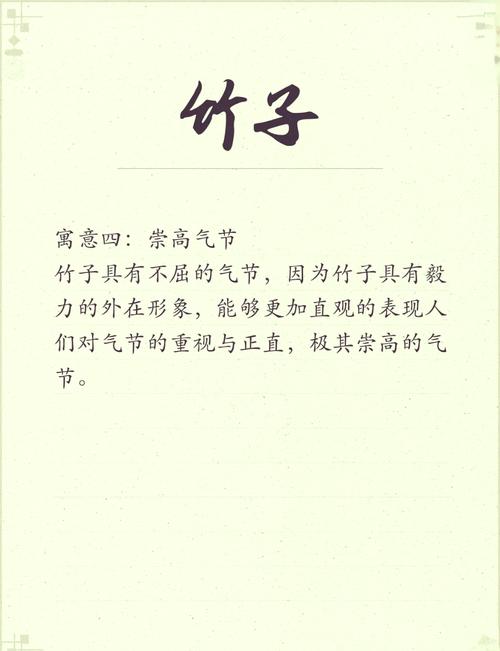 竹子
寓意四：崇高气节
竹子具有不屈的气节，因为竹子具有毅
力的外在形象，能够更加直观的表现人
们对气节的重视与正直，极其崇高的气
节。